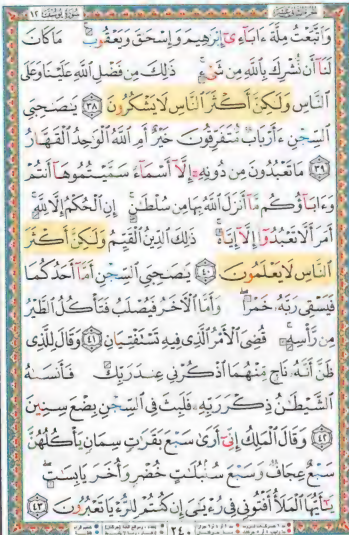 سورة يوسف ١٢
وَاتَّبَعْتُ مِلَّةَ ءَابَآءِىٓ إِبْرَٰهِيمَ وَإِسْحَٰقَ وَيَعْقُوبَ ۚ مَا كَانَ
لَنَآ أَن نُّشْرِكَ بِٱللَّهِ مِن شَىْءٍ ۚ ذَٰلِكَ مِن فَضْلِ ٱللَّهِ عَلَيْنَا وَعَلَى
ٱلنَّاسِ وَلَٰكِنَّ أَكْثَرَ ٱلنَّاسِ لَا يَشْكُرُونَ ٣٨ يَٰصَىٰحِبَىِ
ٱلسِّجْنِ ءَأَرْبَابٌ مُّتَفَرِّقُونَ خَيْرٌ أَمِ ٱللَّهُ ٱلْوَٰحِدُ ٱلْقَهَّارُ
٣٩ مَا تَعْبُدُونَ مِن دُونِهِۦٓ إِلَّآ أَسْمَآءً سَمَّيْتُمُوهَآ أَنتُمْ
وَءَابَآؤُكُم مَّآ أَنزَلَ ٱللَّهُ بِهَا مِن سُلْطَٰنٍ ۚ إِنِ ٱلْحُكْمُ إِلَّا لِلَّهِ ۚ
أَمَرَ أَلَّا تَعْبُدُوٓا۟ إِلَّآ إِيَّاهُ ۚ ذَٰلِكَ ٱلدِّينُ ٱلْقَيِّمُ وَلَٰكِنَّ أَكْثَرَ
ٱلنَّاسِ لَا يَعْلَمُونَ ٤٠ يَٰصَٰحِبَىِ ٱلسِّجْنِ أَمَّآ أَحَدُكُمَا
فَيَسْقِى رَبَّهُۥ خَمْرًا ۖ وَأَمَّا ٱلْءَاخَرُ فَيُصْلَبُ فَتَأْكُلُ ٱلطَّيْرُ
مِن رَّأْسِهِۦ ۚ قُضِىَ ٱلْأَمْرُ ٱلَّذِى فِيهِ تَسْتَفْتِيَانِ ٤١ وَقَالَ لِلَّذِى
ظَنَّ أَنَّهُۥ نَاجٍ مِّنْهُمَا ٱذْكُرْنِى عِندَ رَبِّكَ فَأَنسَىٰهُ
ٱلشَّيْطَٰنُ ذِكْرَ رَبِّهِۦ فَلَبِثَ فِى ٱلسِّجْنِ بِضْعَ سِنِينَ
٤٢ وَقَالَ ٱلْمَلِكُ إِنِّىٓ أَرَىٰ سَبْعَ بَقَرَٰتٍ سِمَانٍ يَأْكُلُهُنَّ
سَبْعٌ عِجَافٌ وَسَبْعَ سُنۢبُلَٰتٍ خُضْرٍ وَأُخَرَ يَابِسَٰتٍ ۖ
يَٰٓأَيُّهَا ٱلْمَلَأُ أَفْتُونِى فِى رُءْيَٰىَ إِن كُنتُمْ لِلرُّءْيَا تَعْبُرُونَ ٤٣
٢٤٠